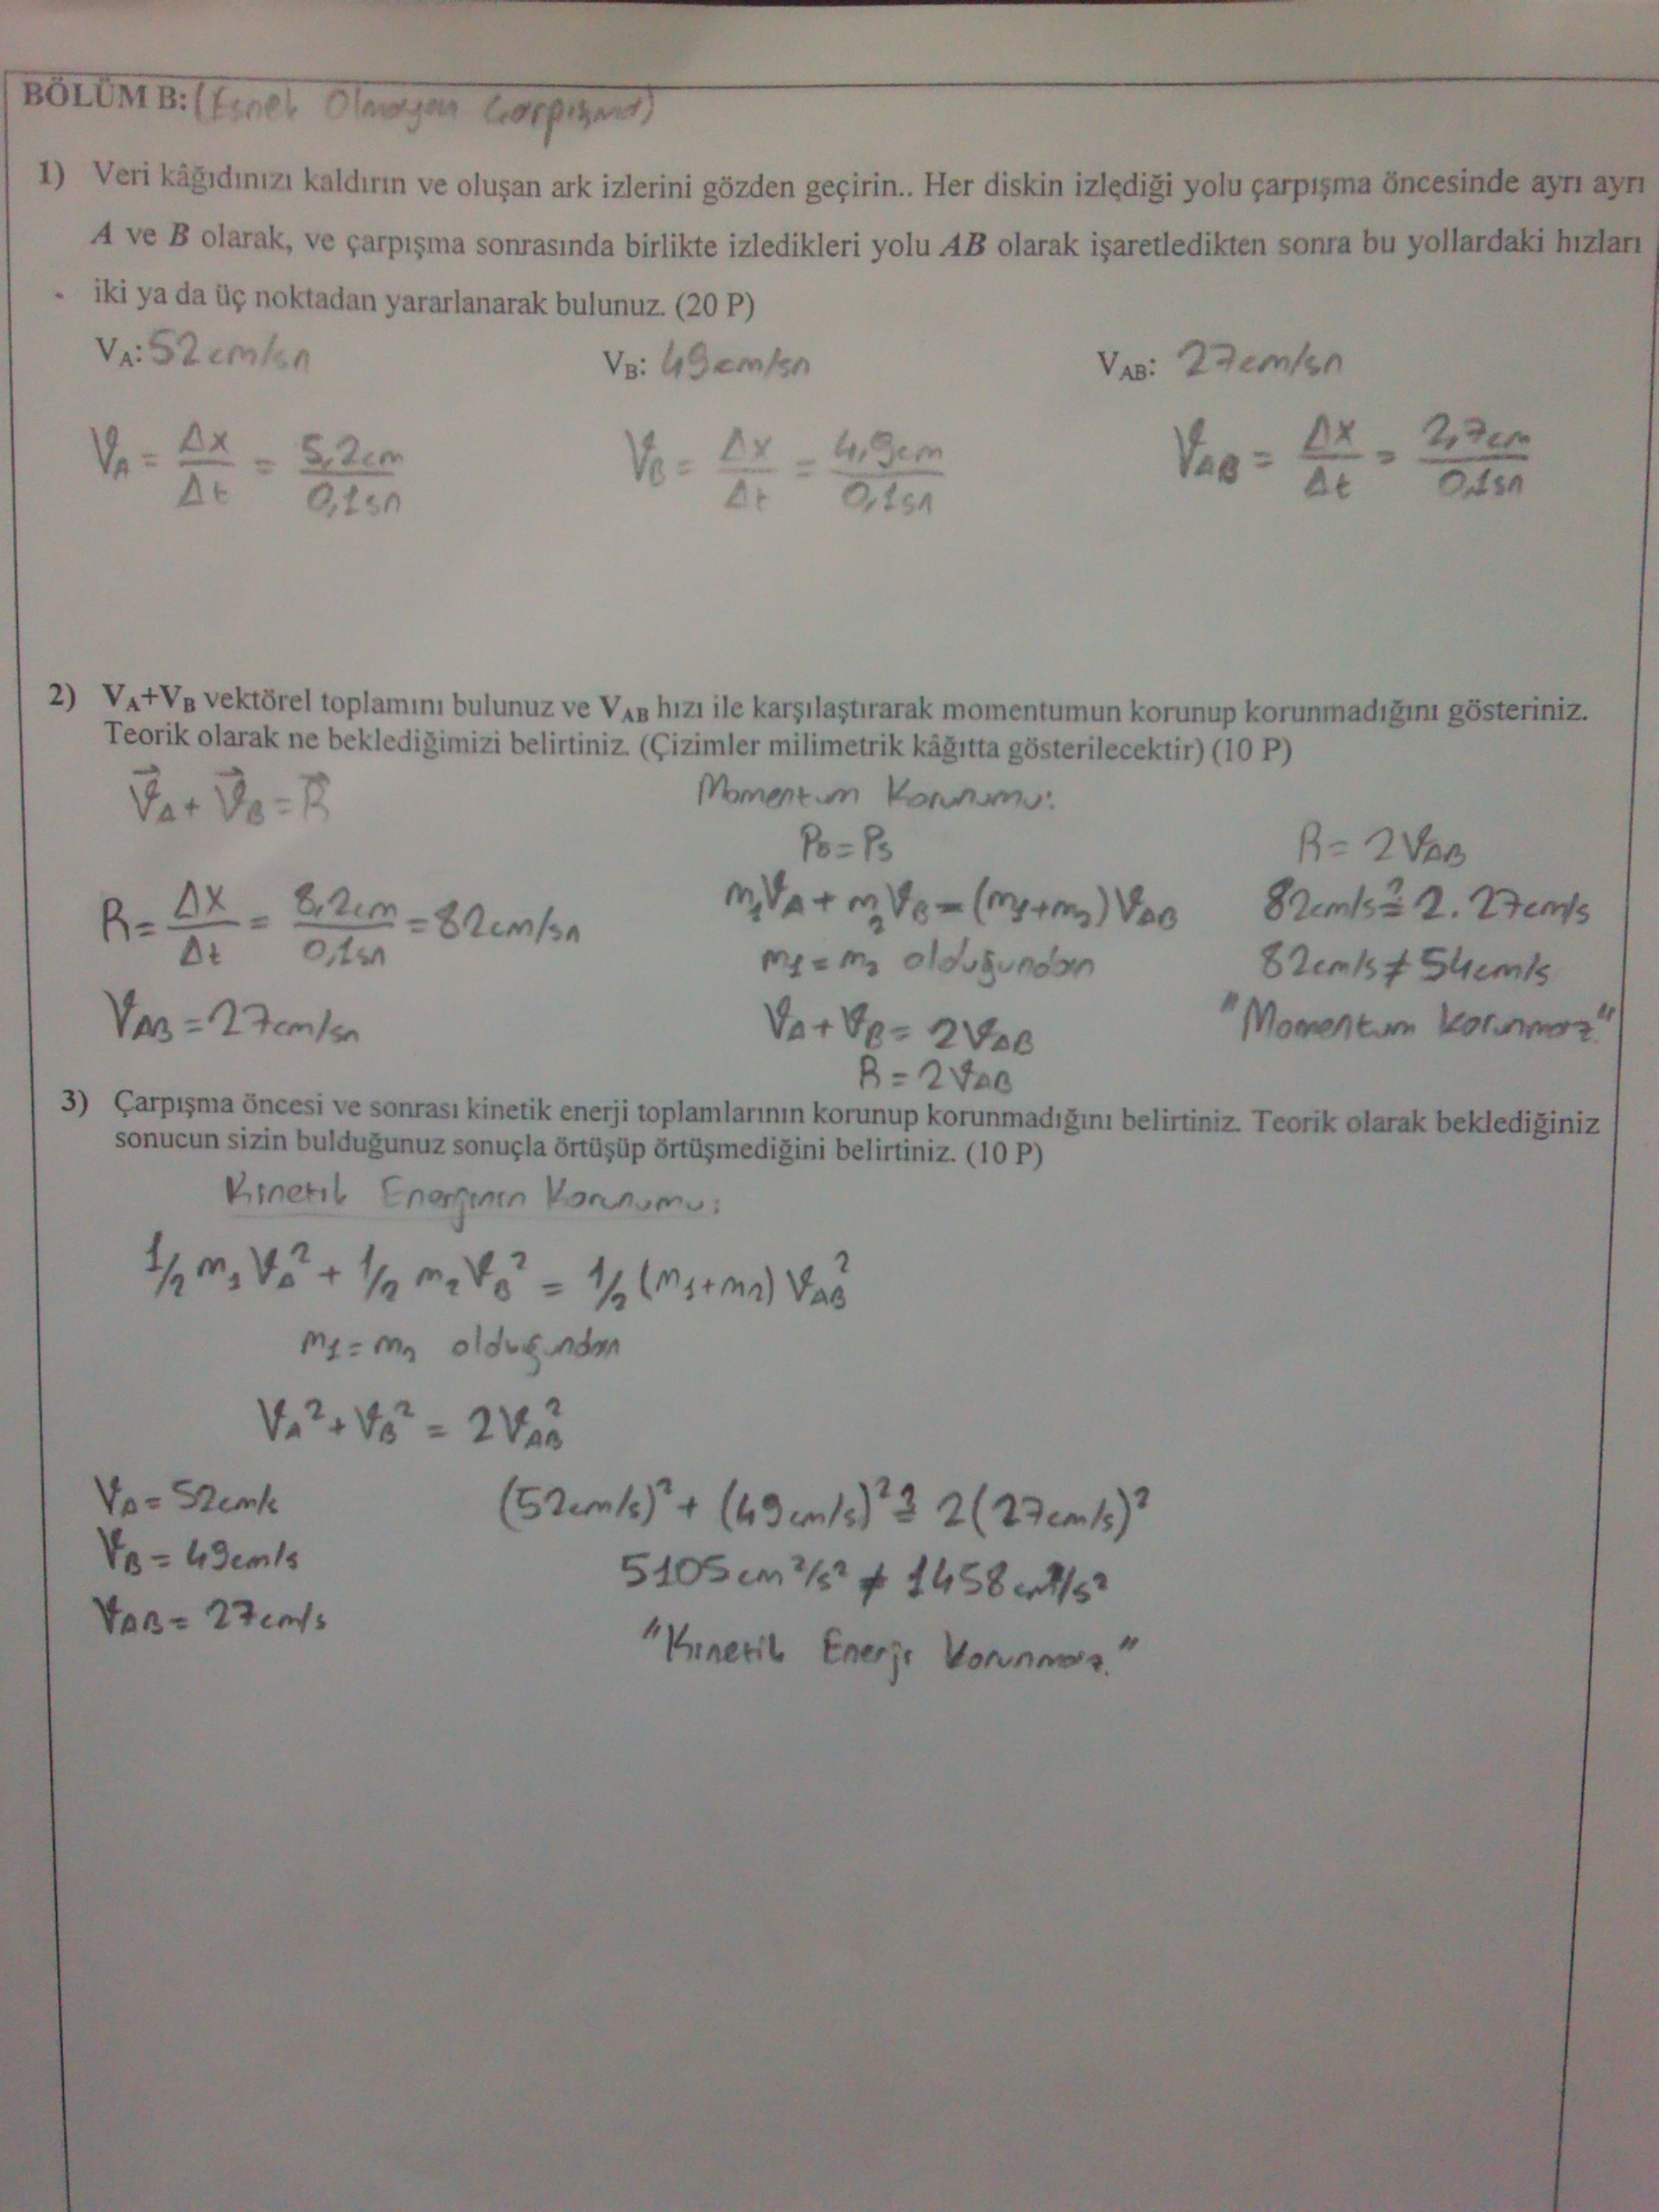 BÖLÜM B: (Esnek Olmayan Çarpışma)
1) Veri kâğıdınızı kaldırın ve oluşan ark izlerini gözden geçirin.. Her diskin izlediği yolu çarpışma öncesinde ayrı ayrı
A ve B olarak, ve çarpışma sonrasında birlikte izledikleri yolu AB olarak işaretledikten sonra bu yollardaki hızları
iki ya da üç noktadan yararlanarak bulunuz. (20 P)
VA: 52 cm/sn VB: 49cm/sn VAB: 27cm/sn
VA = Δx/Δt = 5,2cm/0,1sn VB = Δx/Δt = 4,9cm/0,1sn VAB = Δx/Δt = 2,7cm/0,1sn
2) VA+VB vektörel toplamını bulunuz ve VAB hızı ile karşılaştırarak momentumun korunup korunmadığını gösteriniz.
Teorik olarak ne beklediğimizi belirtiniz. (Çizimler milimetrik kâğıtta gösterilecektir) (10 P)
V⃗A + V⃗B = R⃗ Momentum Korunumu:
Pö = Ps R = 2VAB
R = Δx/Δt = 8,2cm/0,1sn = 82cm/sn m1VA + m2VB = (m1+m2) VAB 82cm/s ≟ 2. 27cm/s
m1 = m2 olduğundan 82cm/s ≠ 54cm/s
VAB = 27cm/sn VA + VB = 2VAB "Momentum korunmaz"
R = 2VAB
3) Çarpışma öncesi ve sonrası kinetik enerji toplamlarının korunup korunmadığını belirtiniz. Teorik olarak beklediğiniz
sonucun sizin bulduğunuz sonuçla örtüşüp örtüşmediğini belirtiniz. (10 P)
Kinetik Enerjinin Korunumu:
1/2 m1 VA² + 1/2 m2 VB² = 1/2 (m1+m2) VAB²
m1 = m2 olduğundan
VA² + VB² = 2VAB²
VA = 52cm/s (52cm/s)² + (49cm/s)² ≟ 2(27cm/s)²
VB = 49cm/s 5105 cm²/s² ≠ 1458 cm²/s²
VAB = 27cm/s "Kinetik Enerji Korunmaz."